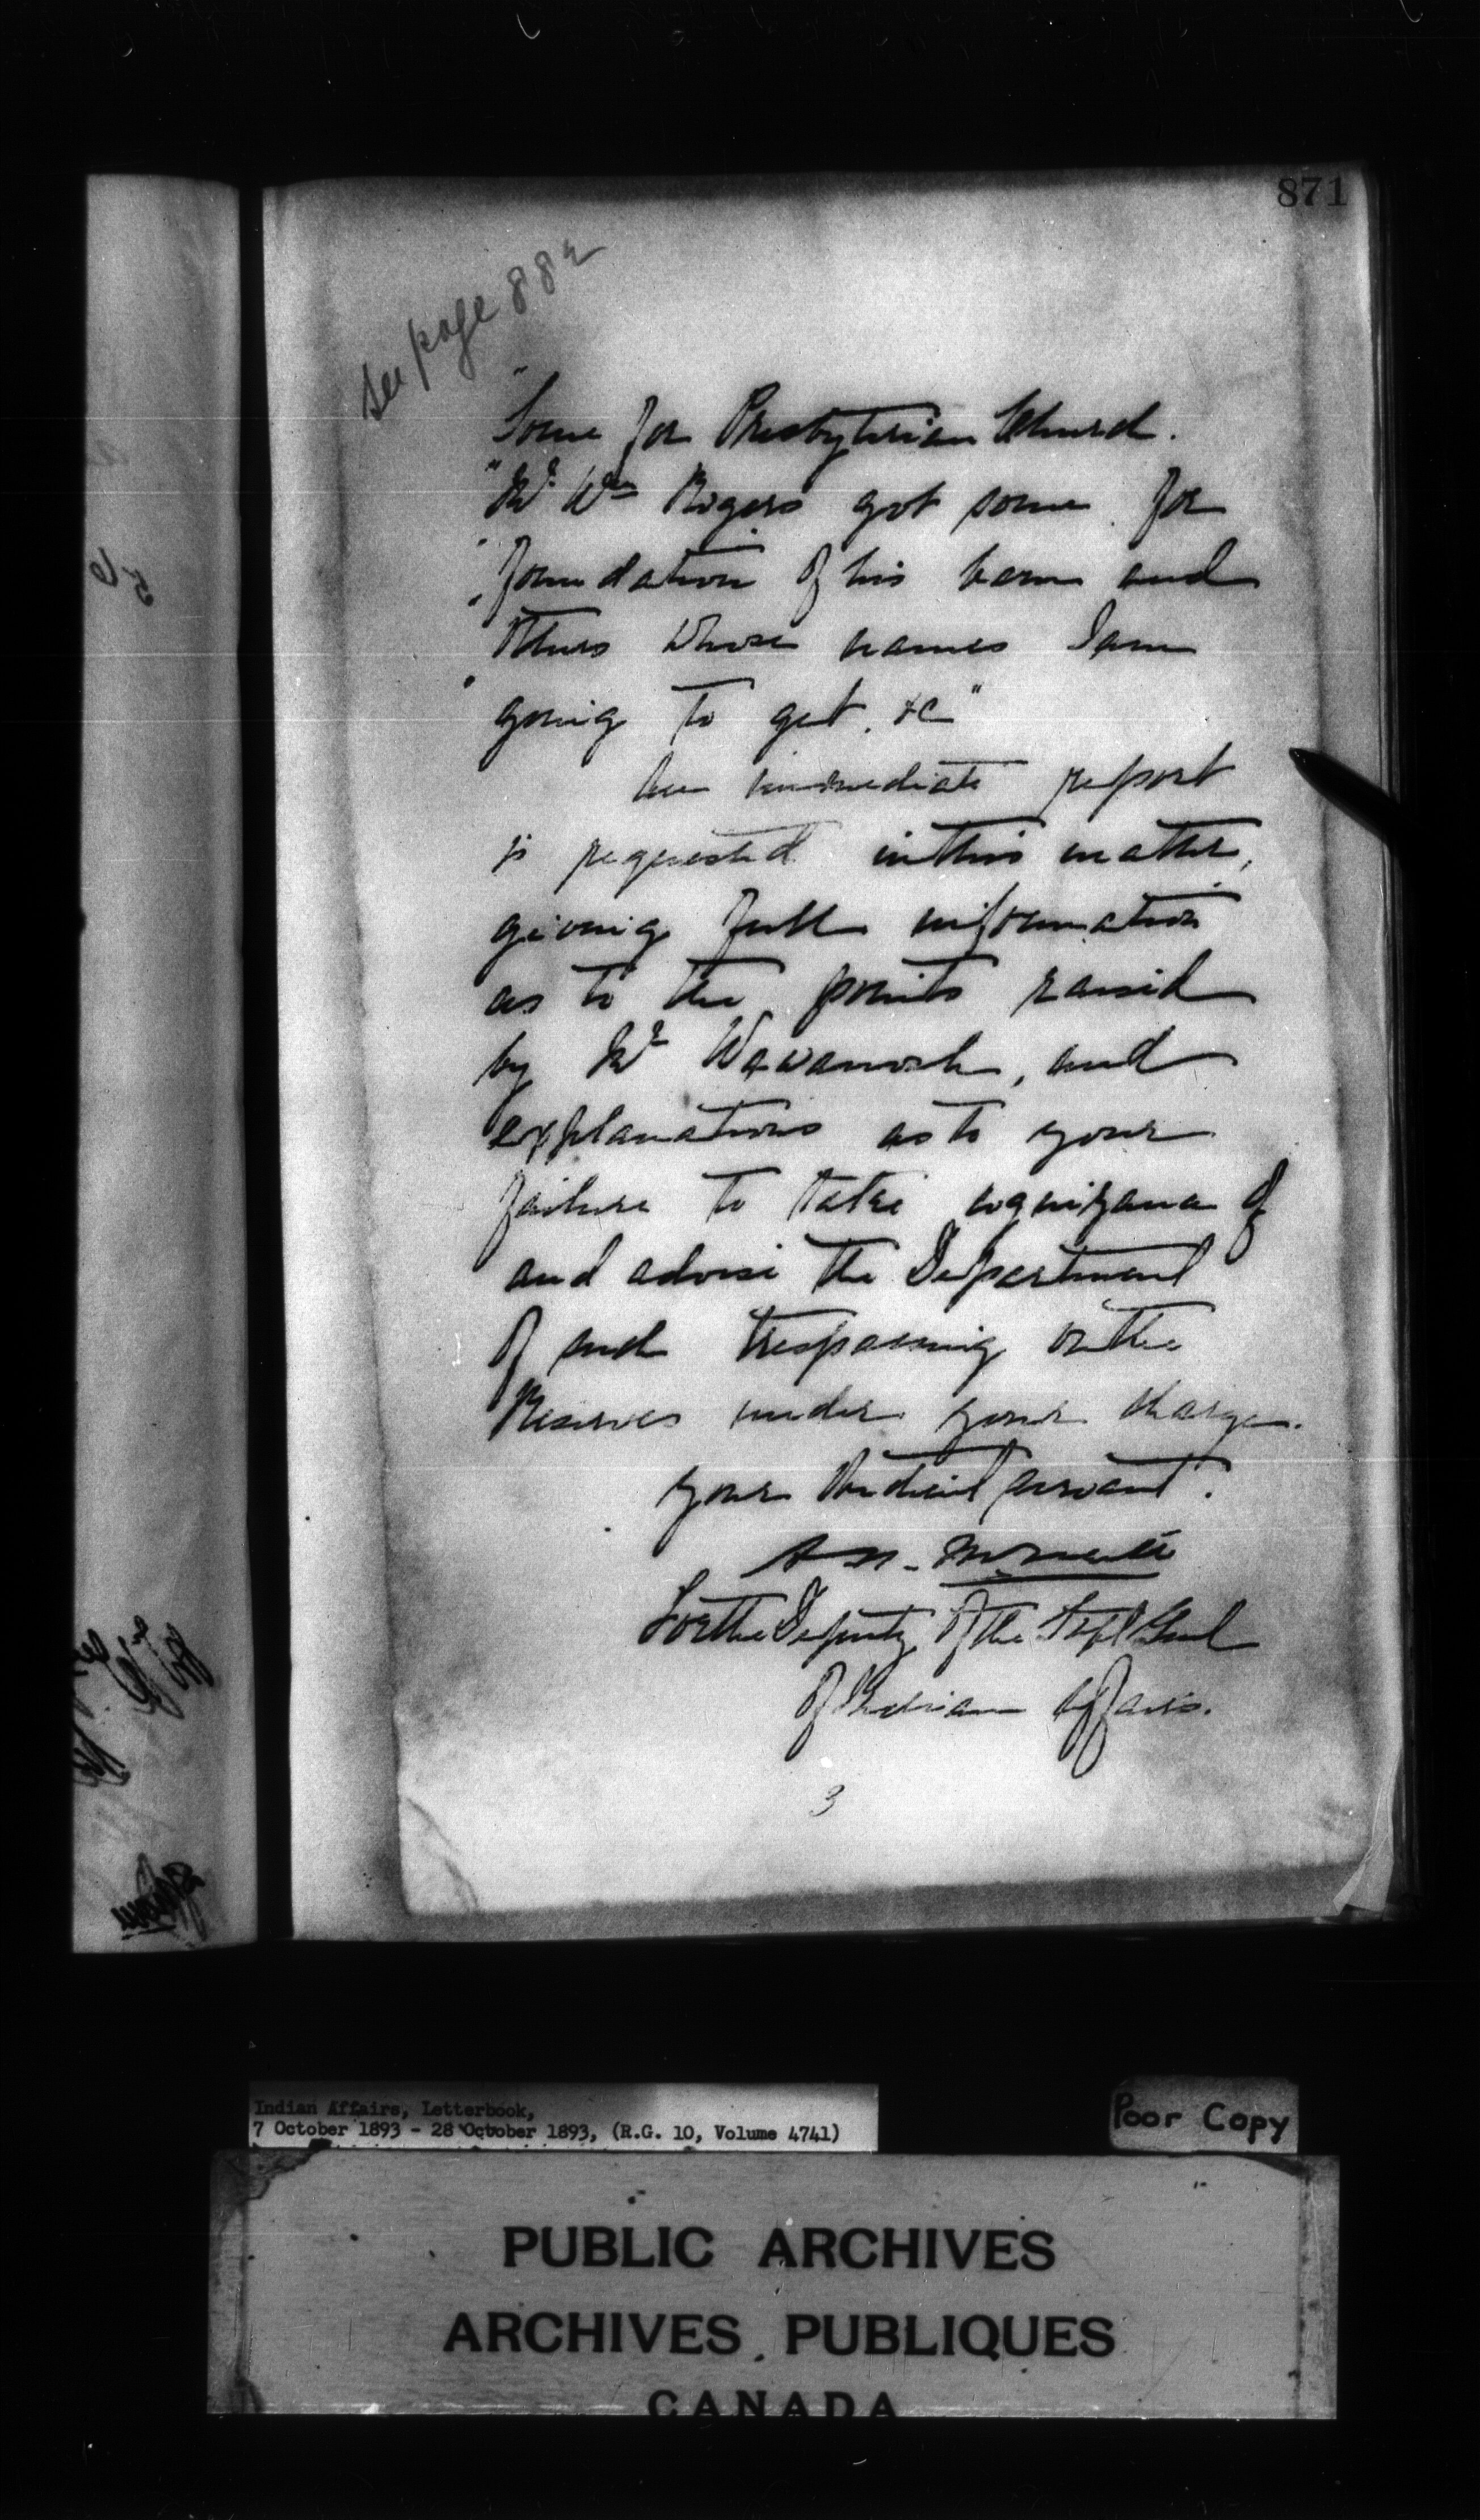 871
See page 882
"Some for Presbyterian Church.
"Mr Wm Rogers got some for
"foundation of his barn and
"others whose names I am
"going to get &c"
An immediate report
is requested in this matter,
giving full information
as to the points raised
by Mr Wawanosh, and
explanations as to your
failure to take cognizance of
and advise the Department
of such trespassing on the
Reserves under your charge.
Your obedient servant.
For the Deputy of the Supt Genl
of Indian Affairs.
3
Indian Affairs, Letterbook,
7 October 1893 - 28 October 1893, (R.G. 10, Volume 4741)
Poor Copy
PUBLIC ARCHIVES
ARCHIVES PUBLIQUES
CANADA